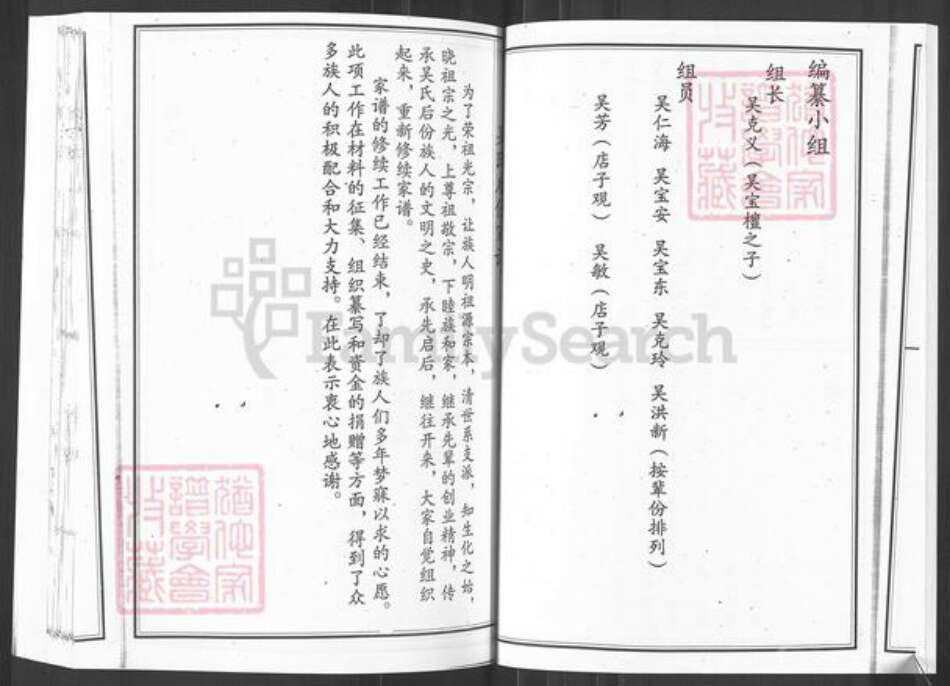 编纂小组
组长
吴克义（吴宝檀之子）
组员
吴仁海　吴宝安　吴宝东　吴克玲　吴洪新（按辈份排列）
吴芳（店子观）　吴敏（店子观）
为了荣祖光宗，让族人明祖源宗本，清世系支派，知生化之始，
晓祖宗之光，上尊祖敬宗，下睦族和家，继承先辈的创业精神，传
承吴氏后份族人的文明之史，承先启后，继往开来，大家自觉组织
起来，重新修续家谱。
家谱的修续工作已经结束，了却了族人们多年梦寐以求的心愿。
此项工作在材料的征集、组织纂写和资金的捐赠等方面，得到了众
多族人的积极配合和大力支持。在此表示衷心地感谢。
FamilySearch